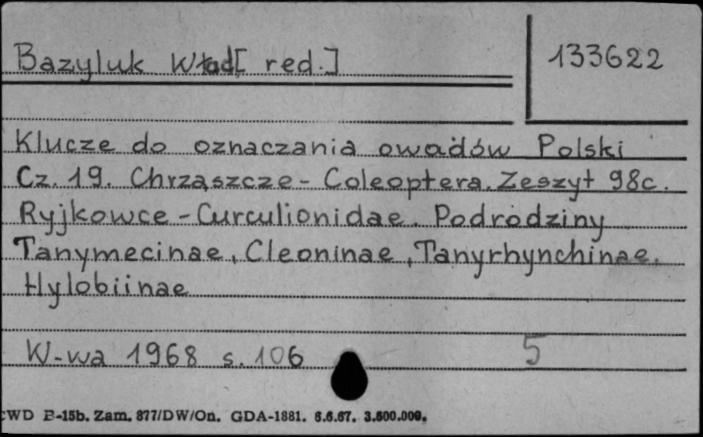 Bazyluk Wład[ red.]
133622
Klucze do oznaczania owadów Polski
Cz. 19. Chrząszcze - Coleoptera. Zeszyt 98c.
Ryjkowce - Curculionidae. Podrodziny
Tanymecinae, Cleoninae, Tanyrhynchinae,
Hylobiinae
W-wa 1968 s. 106
5
CWD B-15b. Zam. 877/DW/On. GDA-1881. 6.6.67. 3.500.000.